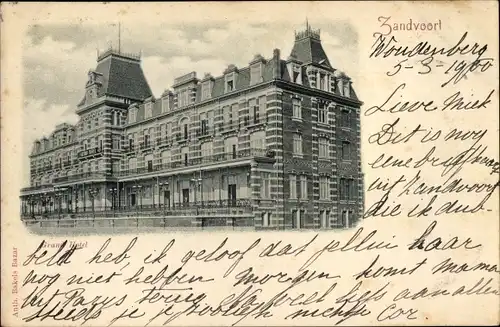 Zandvoort
Woudenberg
5-3-1900
Lieve Miek
Dit is nog
eene briefkaart
uit Zandvoort
die ik dub-
Grand Hotel
beld heb, ik geloof dat jelui haar
nog niet hebben Morgen komt mama
uit Parys terug
Steeds je je
Cor
Auth. Bakels Bazar